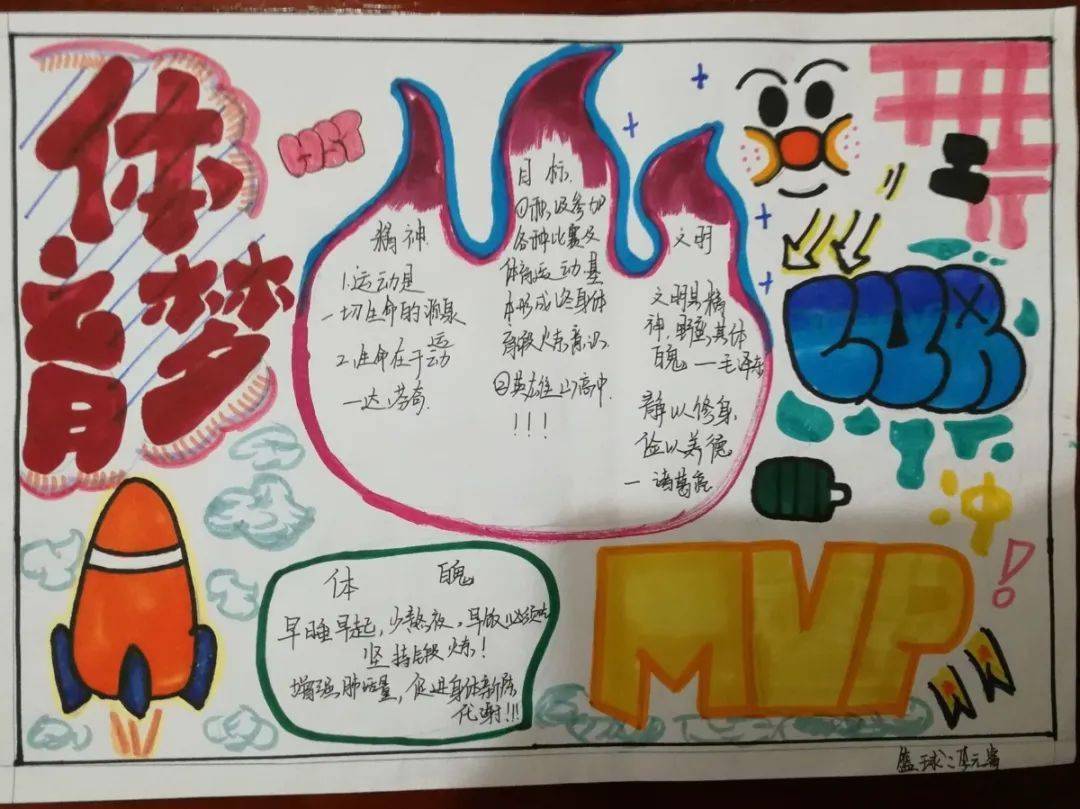 体
育梦
精神
1.运动是
一切生命的源泉
2.生命在于运动
—达.芬奇
目标
①积极参加
各种比赛及
体育运动基
本形成终身体
育锻炼意识
②英雄山高中
!!!
文明
文明其精
神,野蛮其体
魄 —毛泽东
静以修身
俭以养德
— 诸葛亮
冲!
体 魄
早睡早起,少熬夜,早饭必须吃
坚持锻炼!
增强肺活量,促进身体新陈
代谢!!!
MVP
篮球二